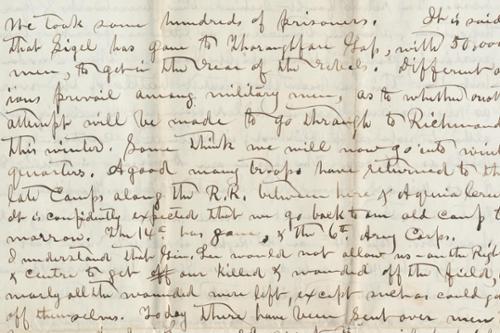 We took some hundreds of prisoners. It is said
that Sigel has gone to Thoroughfare Gap, with 50,000
men, to get in the rear of the rebels. Different o
ions prevail among military men, as to whether or not
attempt will be made to go through to Richmond
this winter. Some think we will now go into wint
quarters. A good many troops have returned to th
late Camps along the R.R. between here & Aquia Cree
It is confidently expected that we go back to our old camp to
morrow. The 14th has gone, & the 6th Army Corps.
I understand that Gen. Lee would not allow us on the Right
& centre to get off our killed & wounded off the field,
nearly all the wounded were left, except such as could g
off themselves. Today there have been sent over men